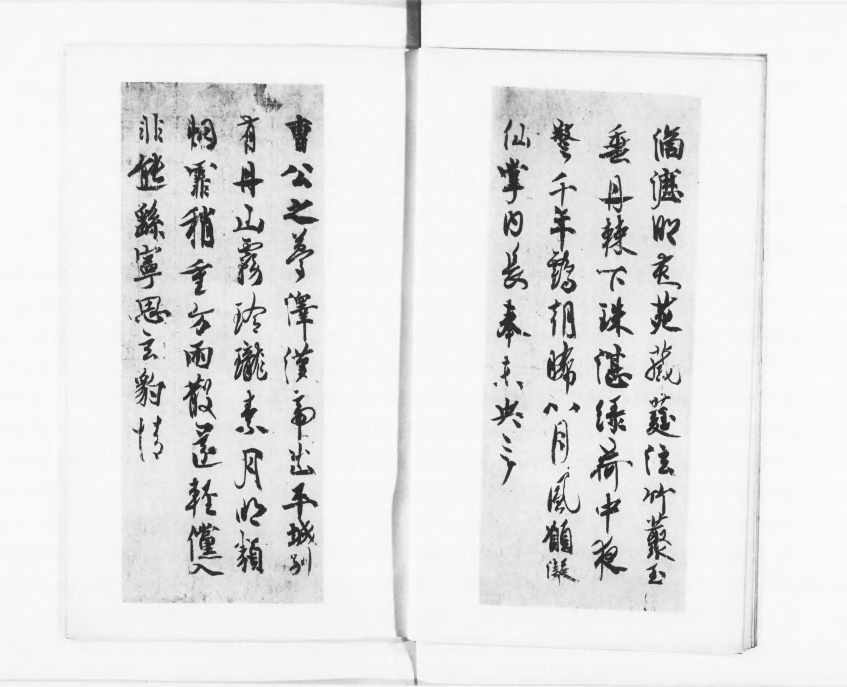 滴瀝明苑葳蕤泫竹叢玉
垂丹棘下珠湛緑荷中夜
警千年鶴朝晞八月風願凝
仙掌内長奉未央宮
曹公之夢澤漢帝出平城別
有丹山霧玲瓏素月明類
烟霏稍重方雨散還輕儻入
非熊繇寧思玄豹情